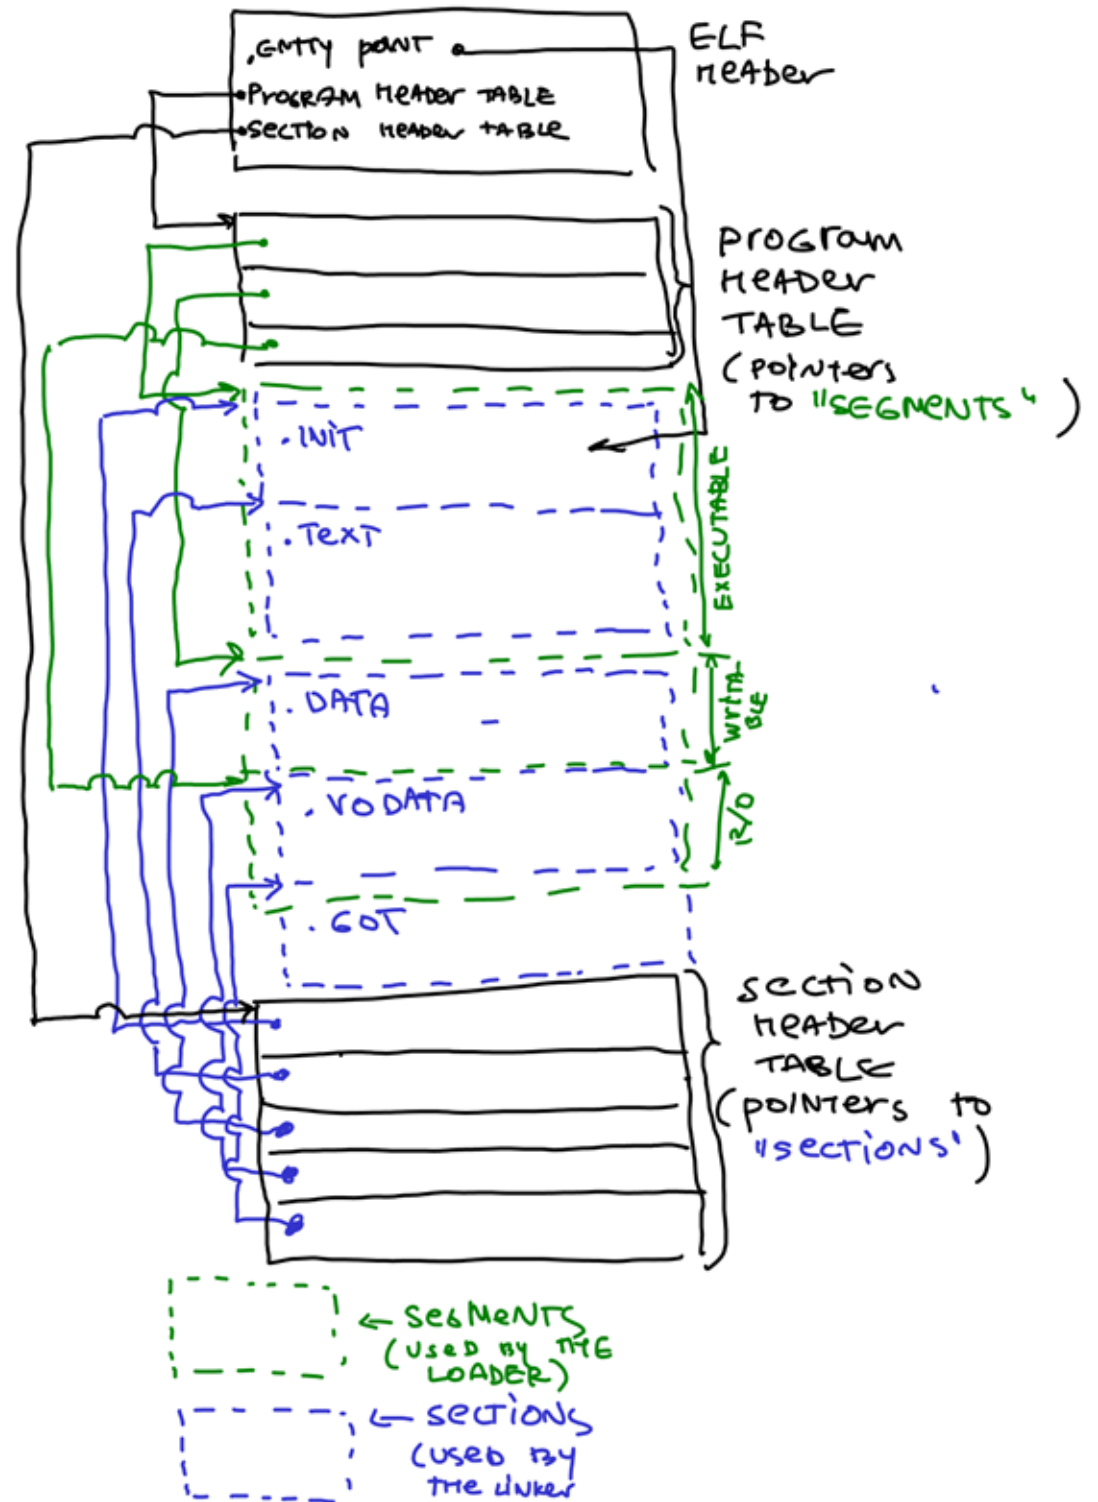 .ENTTY POINT
PROGRAM HEADER TABLE
SECTION HEADER TABLE
ELF
HEADER
PROGRAM
HEADER
TABLE
(POINTERS
TO "SEGMENTS")
.INIT
.TEXT
EXECUTABLE
.DATA
WRITA-
BLE
.RODATA
R/O
.GOT
SECTION
HEADER
TABLE
(POINTERS TO
"SECTIONS")
← SEGMENTS
(USED BY THE
LOADER)
← SECTIONS
(USED BY
THE LINKER